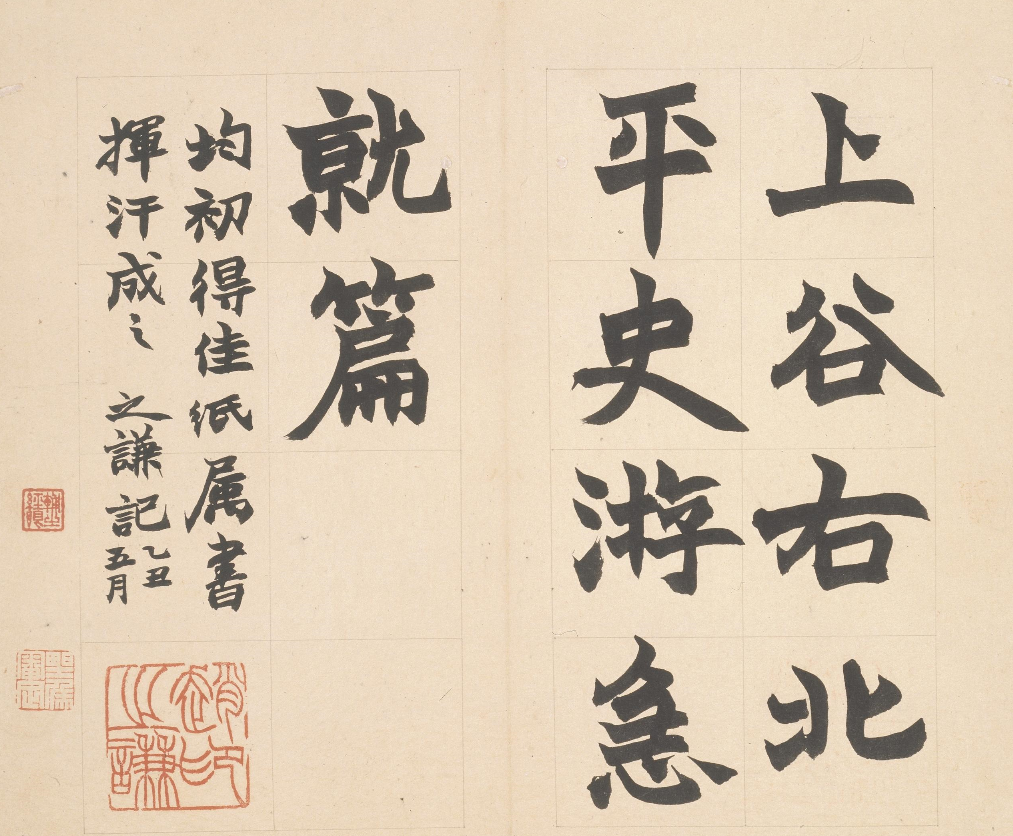 上谷右北
平史游急
就篇
均初得佳紙属書
揮汗成之 之謙記 乙丑五月
趙之謙印